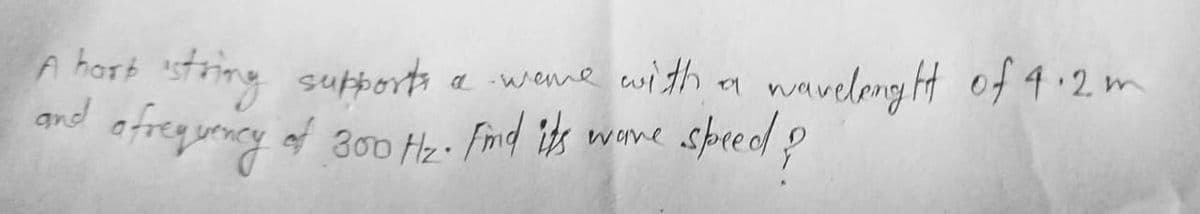 A harp string supports a wave with a wavelenght of 4.2 m
and a frequency of 300 Hz. Find its wave speed?